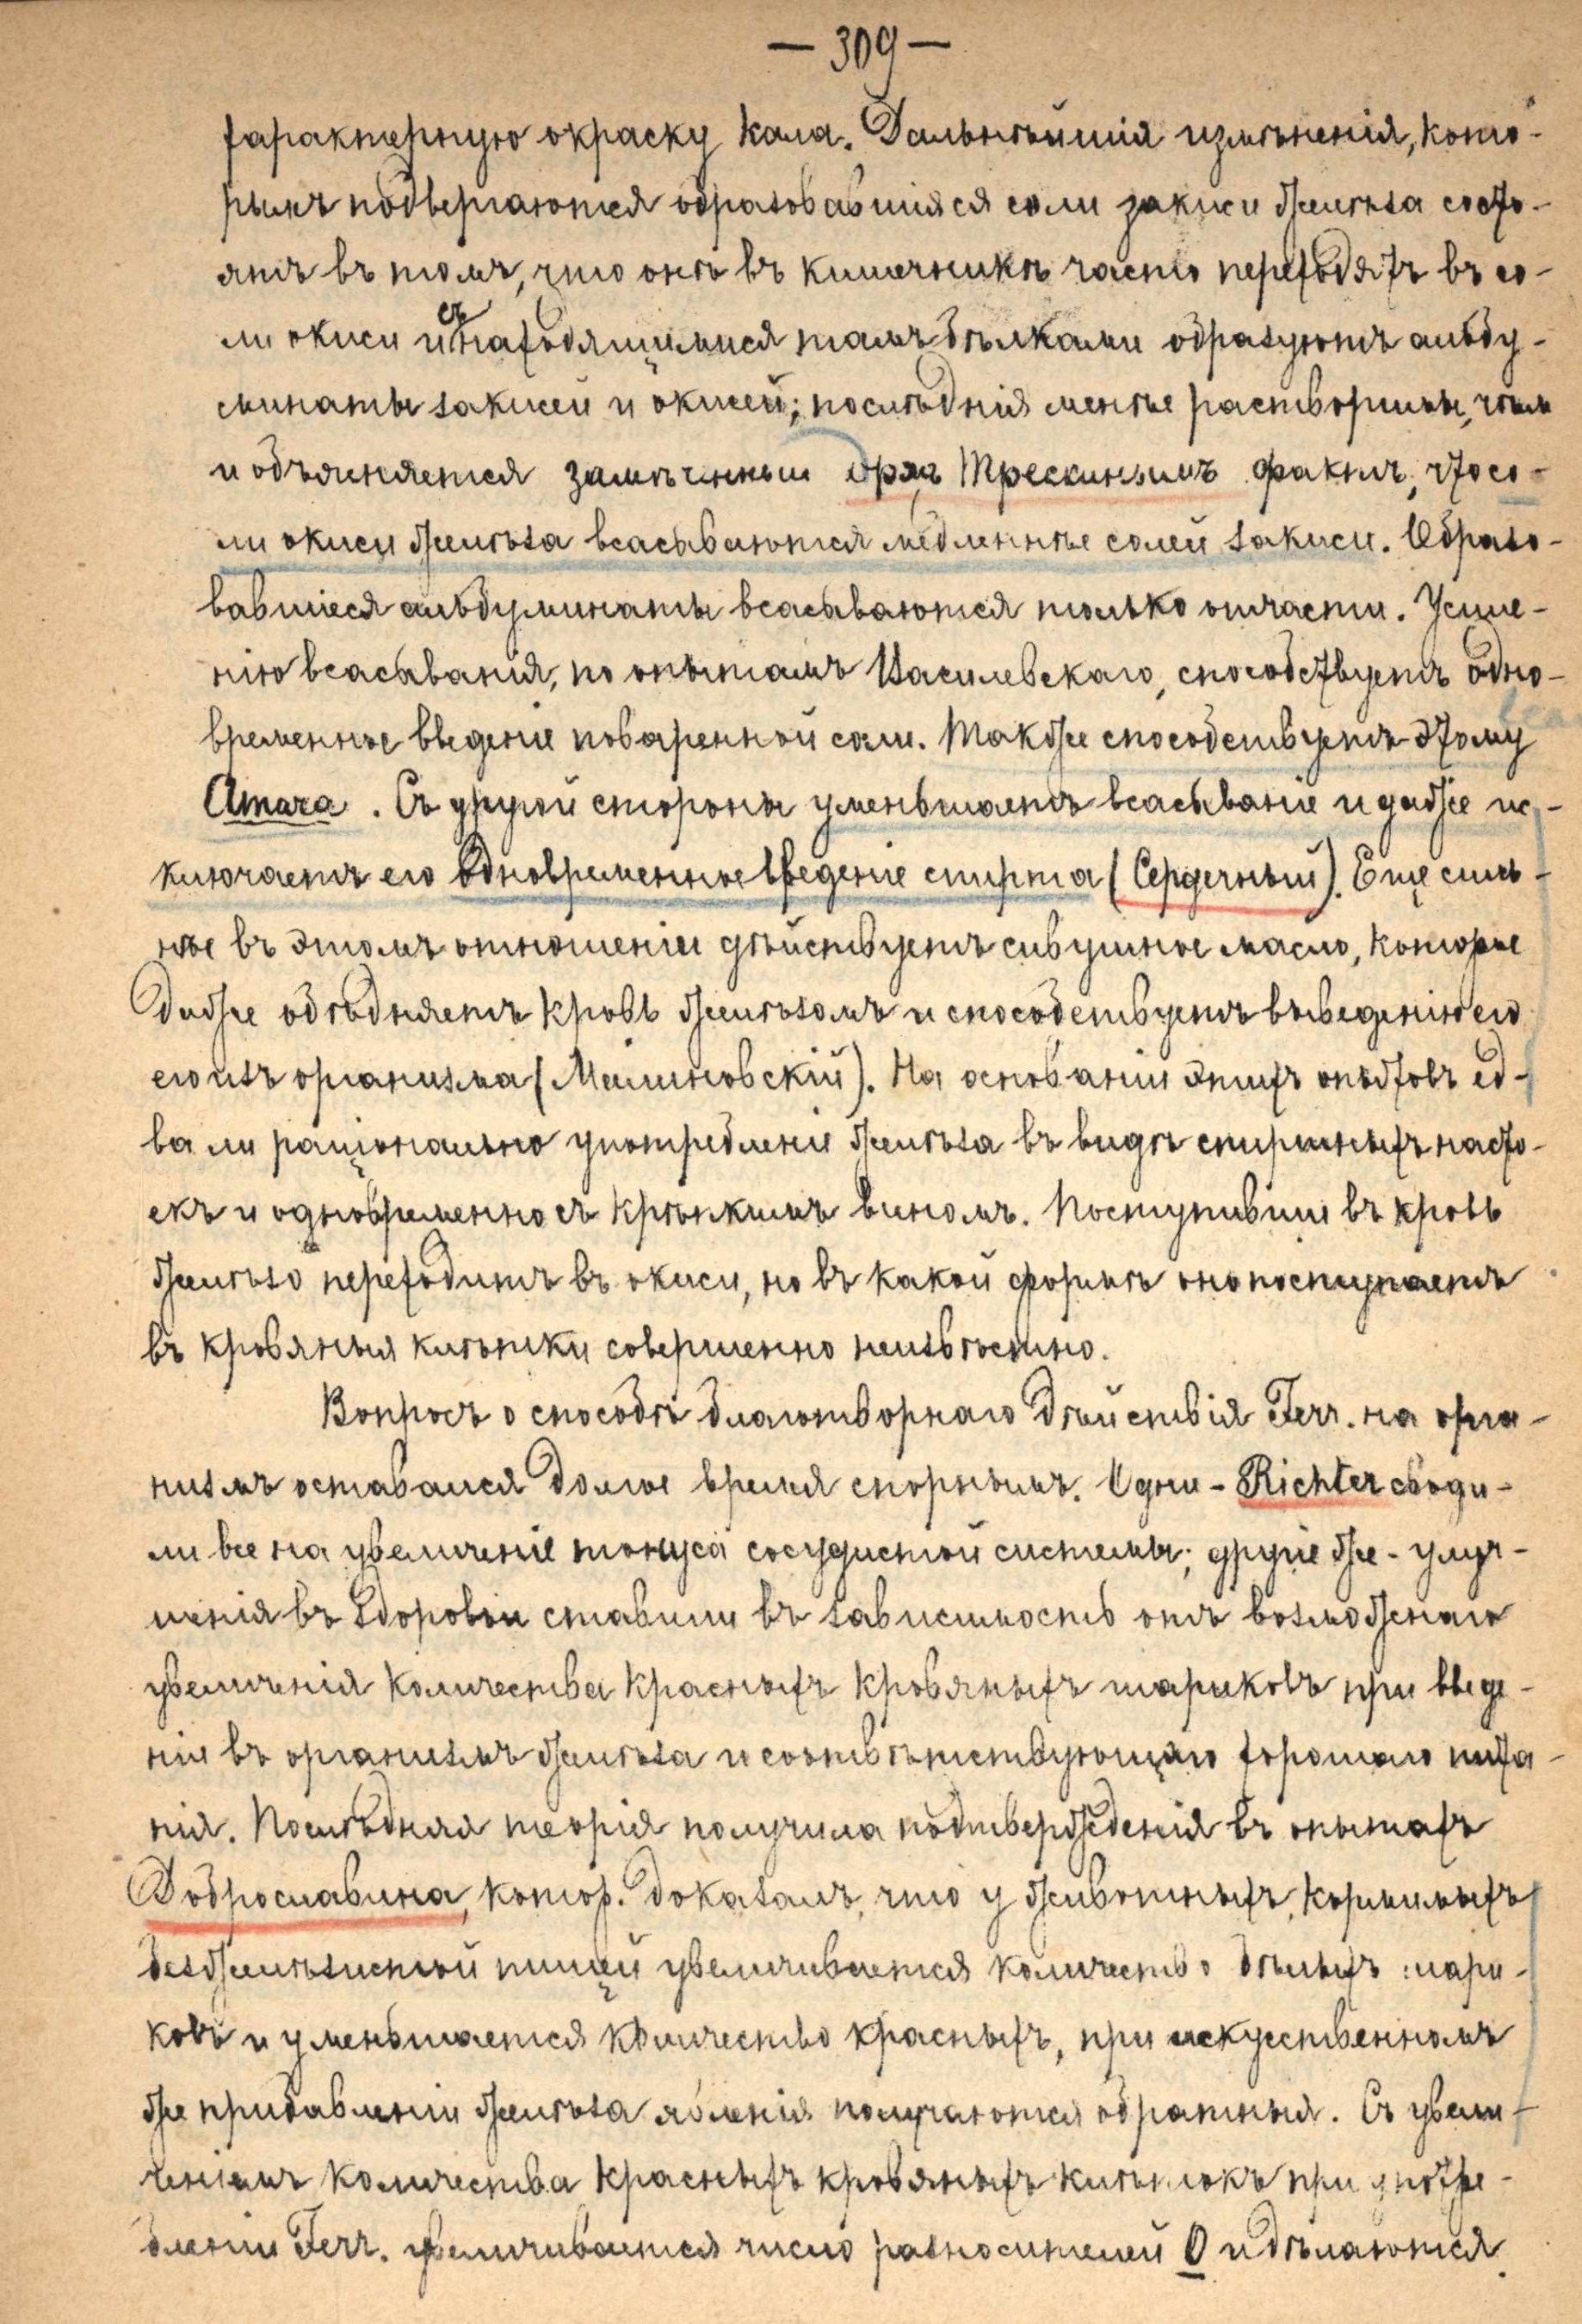 — 309 —
характерную окраску кала. Дальнѣйшія измѣненія, кото-
рымъ подвергаются образовавшіяся соли закиси желѣза состо-
ятъ въ томъ, что онѣ въ кишечникѣ часто переходятъ въ со-
ли окиси и съ находящимися тамъ бѣлками образуютъ альбу-
минаты закисей и окисей; послѣднія менѣе растворимы, чѣмъ
и объясняется замѣченный дромъ Трескинымъ фактъ, что со-
ли окиси желѣза всасываются медленнѣе солей закиси. Образо-
вавшіеся альбуминаты всасываются только отчасти. Усиле-
нію всасыванія, по опытамъ Василевскаго, способствуетъ одно-
временное введеніе поваренной соли. Также способствуетъ этому
Amara. Съ другой стороны уменьшаетъ всасываніе и даже ис-
ключаетъ его одновременное введеніе спирта (Сердечный). Еще силь-
нѣе въ этомъ отношеніи дѣйствуетъ сивушное масло, которое
даже обѣдняетъ кровь желѣзомъ и способствуетъ выведенію его
его изъ организма (Малиновскій). На основаніи этихъ опытовъ ед-
ва ли раціонально употребленіе желѣза въ видѣ спиртныхъ насто-
екъ и одновременно съ крѣпкимъ виномъ. Поступивши въ кровь
желѣзо переходитъ въ окиси, но въ какой формѣ оно поступаетъ
въ кровяныя клѣтки совершенно неизвѣстно.
Вопросъ о способѣ благотворнаго дѣйствія Ferr. на орга-
низмъ оставался долгое время спорнымъ. Одни - Richter своди-
ли все на увеличеніе тонуса сосудистой системы; другіе же - улуч-
шенія въ здоровьи ставили въ зависимость отъ возможнаго
увеличенія количества красныхъ кровяныхъ шариковъ при введе-
ніи въ организмъ желѣза и соотвѣтствующаго хорошаго пита-
нія. Послѣдняя теорія получила подтвержденія въ опытахъ
Доброславина, котор. доказалъ, что у животныхъ, кормимыхъ
безжелѣзистой пищей увеличивается количество бѣлыхъ шари-
ковъ и уменьшается количество красныхъ, при искусственномъ
же прибавленіи желѣза явленія получаются обратныя. Съ увели-
ченіемъ количества красныхъ кровяныхъ клѣтокъ при употре-
бленіи Ferr. увеличивается число разносителей O и дѣлаются